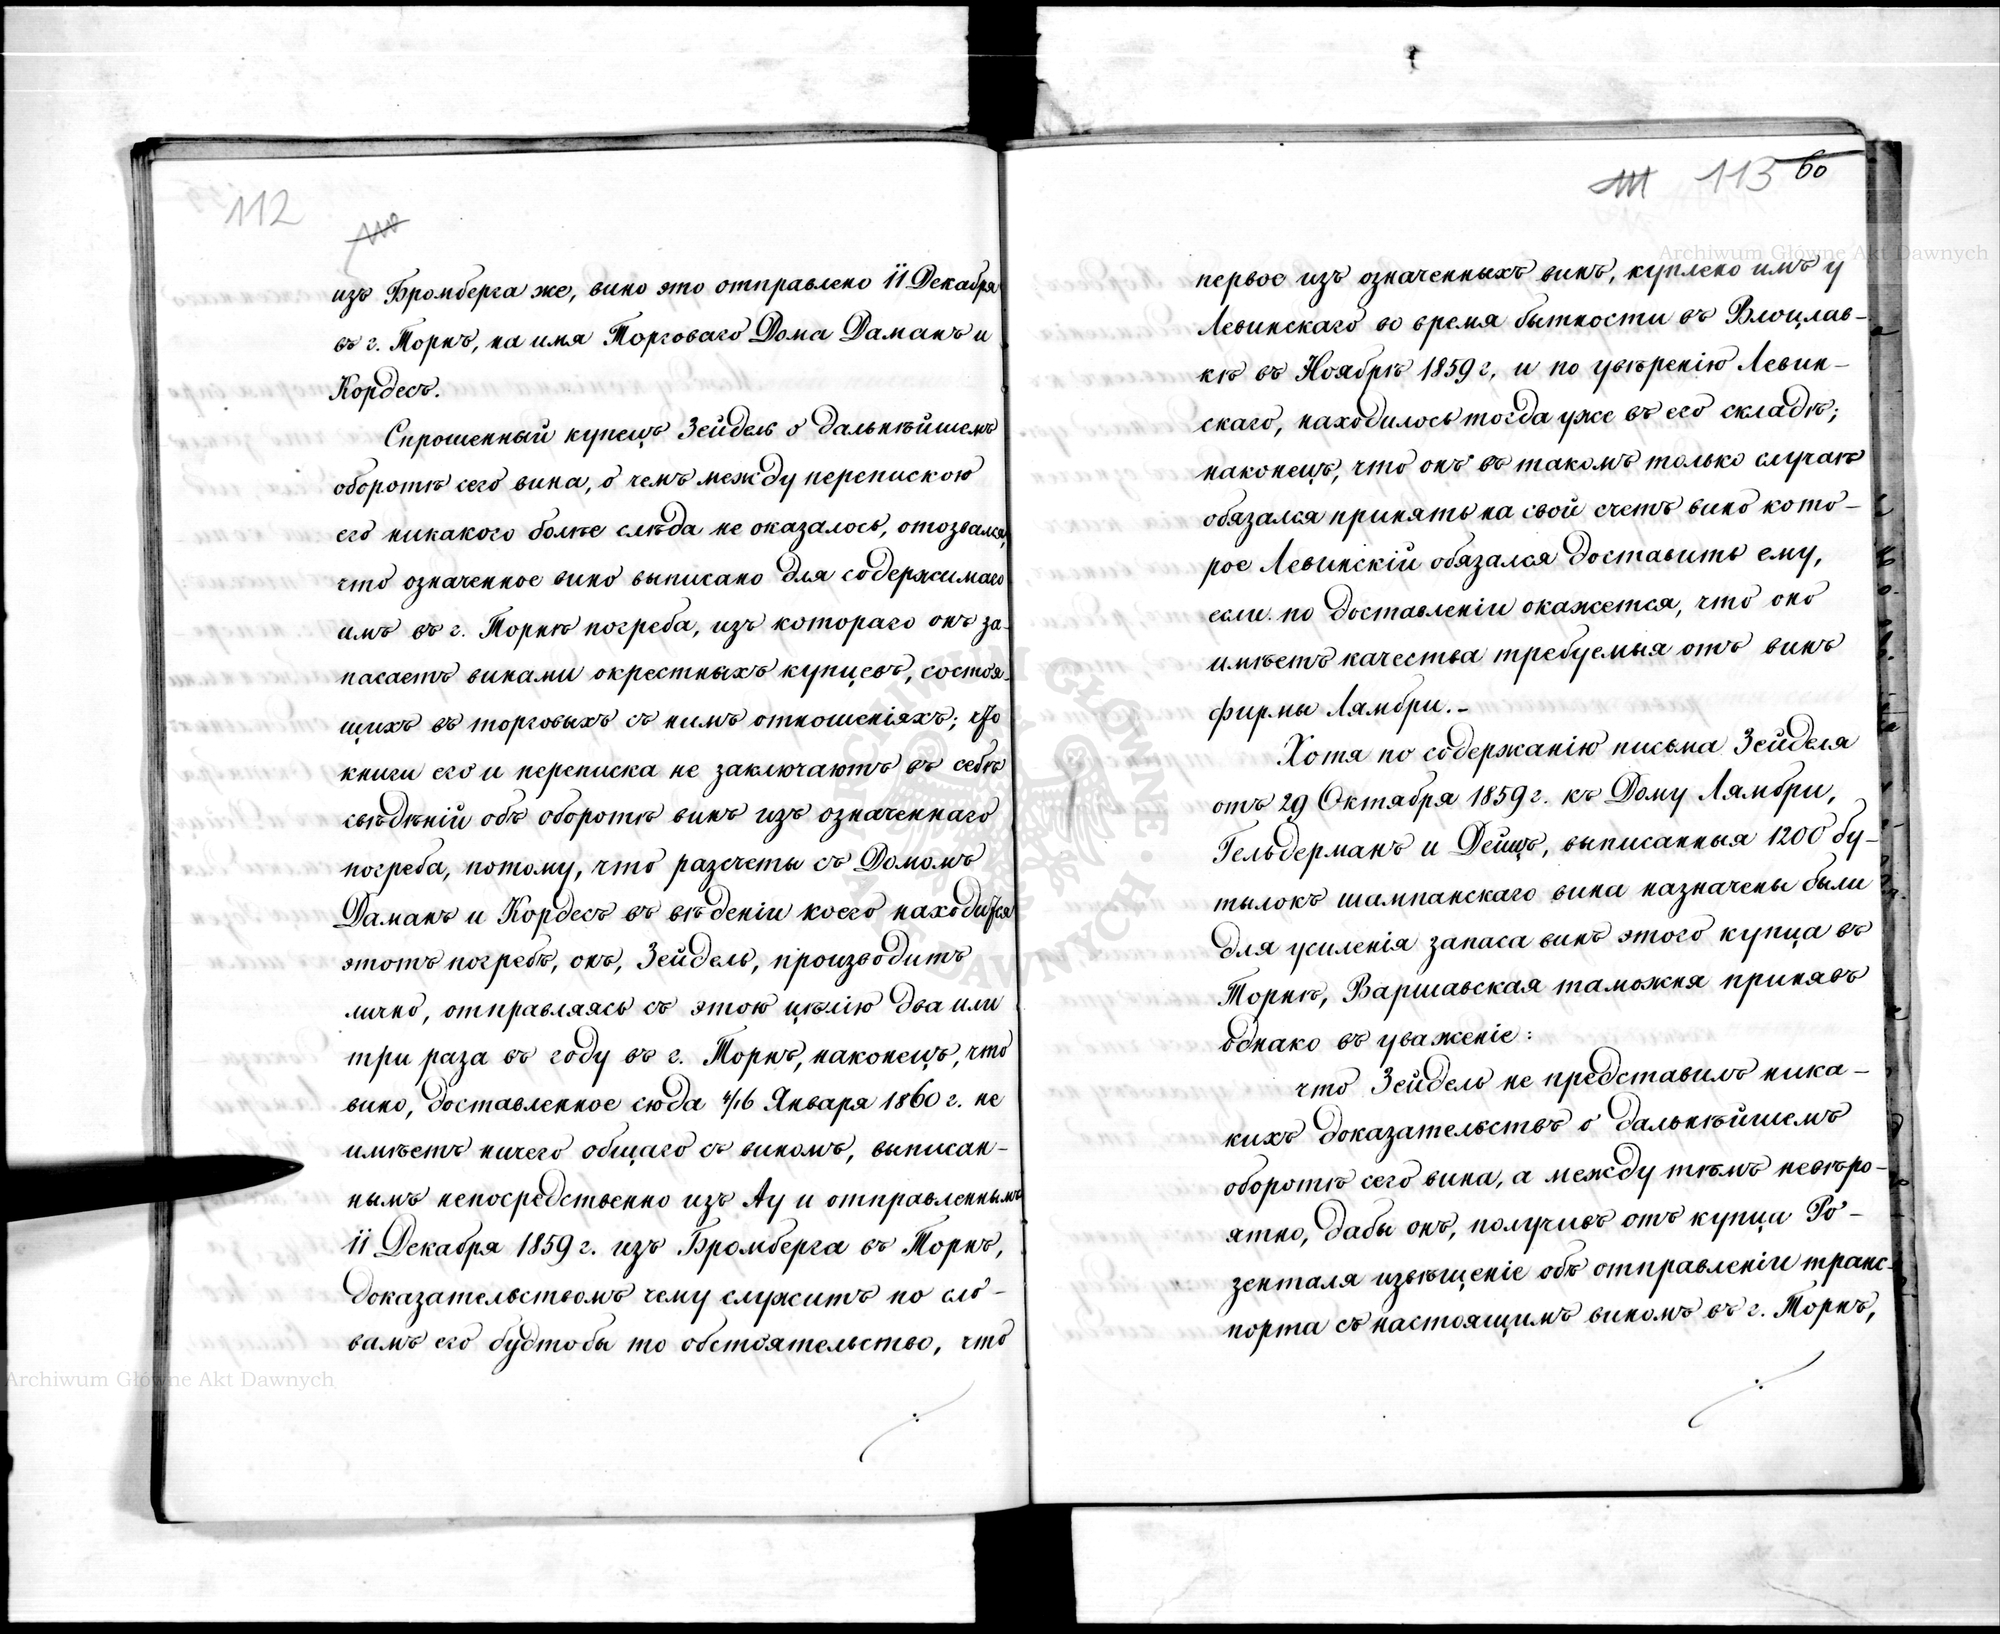 112
110
изъ Бромберга же, вино это отправлено 11 Декабря
въ г. Торнъ, на имя Торговаго Дома Даманъ и
Кордесъ.
Спрошенный купецъ Зейдель о дальнѣйшемъ
оборотѣ сего вина, о чемъ между перепискою
его никакого болѣе слѣда не оказалось, отозвался,
что означенное вино выписано для содержимаго
имъ въ г. Торнѣ погреба, изъ котораго онъ за-
пасаетъ винами окрестныхъ купцовъ, состоя-
щихъ въ торговыхъ съ нимъ отношеніяхъ; что
книги его и переписка не заключаютъ въ себѣ
свѣдѣній объ оборотѣ винъ изъ означеннаго
погреба, потому, что разсчеты съ Домомъ
Даманъ и Кордесъ въ вѣденіи коего находится
этотъ погребъ, онъ, Зейдель, производитъ
лично, отправляясь съ этою цѣлію два или
три раза въ году въ г. Торнъ, наконецъ, что
вино, доставленное сюда 4/16 Января 1860 г. не
имѣетъ ничего общаго съ виномъ, выписан-
нымъ непосредственно изъ Ау и отправленнымъ
11 Декабря 1859 г. изъ Бромберга въ Торнъ,
доказательствомъ чему служитъ по сло-
вамъ его будтобы то обстоятельство, что
111 113 60
первое изъ означенныхъ винъ, куплено имъ у
Левинскаго во время бытности въ Влоцлав-
кѣ въ Ноябрѣ 1859 г, и по увѣренію Левин-
скаго, находилось тогда уже въ его складѣ;
наконецъ, что онъ въ такомъ только случаѣ
обязался принять на свой счетъ вино кото-
рое Левинскій обязался доставить ему,
если по доставленіи окажется, что оно
имѣетъ качества требуемыя отъ винъ
фирмы Лямбри.-
Хотя по содержанію письма Зейделя
отъ 29 Октября 1859 г. къ Дому Лямбри,
Гельдерманъ и Дейцъ, выписанныя 1200 бу-
тылокъ шампанскаго вина назначены были
для усиленія запаса винъ этого купца въ
Торнѣ, Варшавская таможня принявъ
однако въ уваженіе:
что Зейдель не представилъ ника-
кихъ доказательствъ о дальнѣйшемъ
оборотѣ сего вина, а между тѣмъ невѣро-
ятно, дабы онъ, получивъ отъ купца Ро-
зенталя извѣщеніе объ отправленіи транс-
порта съ настоящимъ виномъ въ г. Торнъ,
Archiwum Główne Akt Dawnych
Archiwum Główne Akt Dawnych
ARCHIWUM GŁÓWNE AKT DAWNYCH